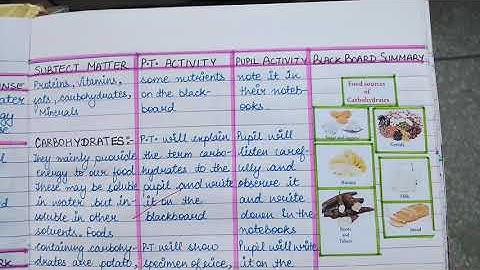 NSE
ater
gy
se
d
RK
SUBJECT MATTER
Proteins, Vitamins,
fats, carbohydrates,
Minerals
CARBOHYDRATES:-
They mainly provide
energy to our food
These may be soluble
in water but in-
soluble in other
solvents. Foods
containing carbohy-
drates are potato,
P.T. ACTIVITY
some nutrients
on the black-
board
P.T. will explain
the term carbo-
hydrates to the
pupil and write
it on the
blackboard
P.T. will show
specimen of rice,
PUPIL ACTIVITY
note it in
their noteb-
ooks
Pupil will
listen caref-
ully and
observe it
and write
down in the
notebooks
Pupil will write
it on the
BLACK BOARD SUMMARY
Food sources
of
Carbohydrates
Cereals
Banana
Milk
Roots
and
Tubers
Bread